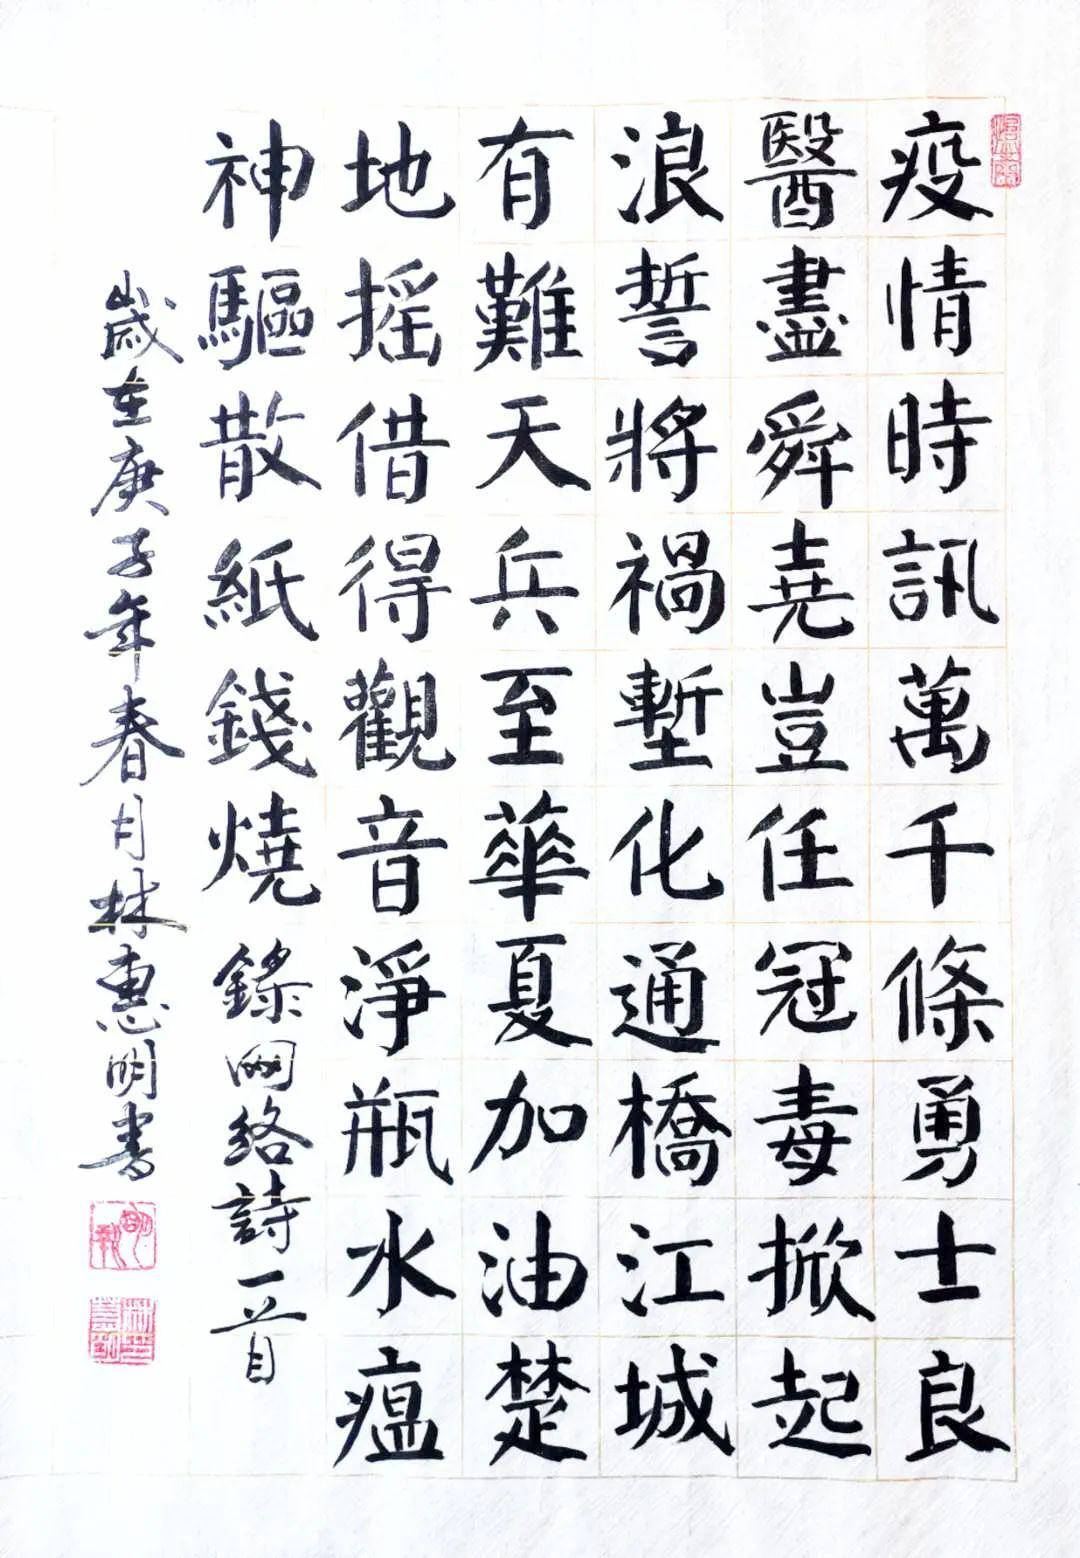 疫情時訊萬千條勇士良
醫盡舜堯豈任冠毒掀起
浪誓將禍塹化通橋江城
有難天兵至華夏加油楚
地摇借得觀音淨瓶水瘟
神驅散紙錢燒錄网络詩一首
歲在庚子年春月林惠明書